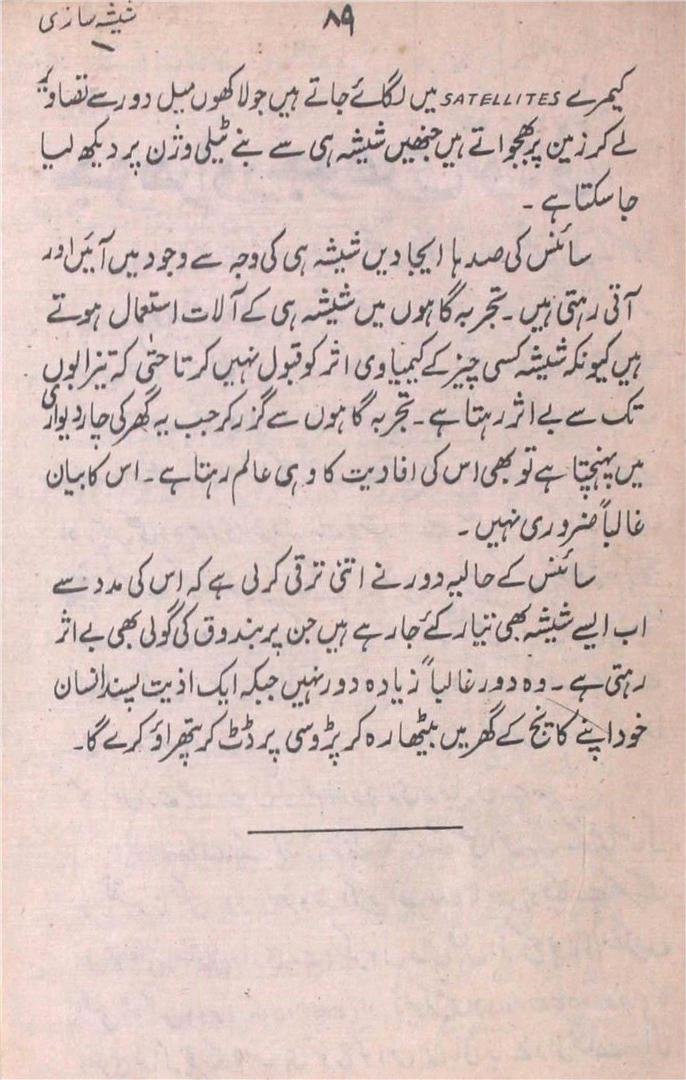 ۸۹
شیشہ سازی
کیمرے SATELLITES میں لگائے جاتے ہیں جو لاکھوں میل دور سے تصاویر
لے کر زمین پر بھجواتے ہیں جنھیں شیشہ ہی سے بنے ٹیلی وژن پر دیکھ لیا
جا سکتا ہے ۔
سائنس کی صدہا ایجادیں شیشہ ہی کی وجہ سے وجود میں آئیں اور
آتی رہتی ہیں ۔ تجربہ گاہوں میں شیشہ ہی کے آلات استعمال ہوتے
ہیں کیونکہ شیشہ کسی چیز کے کیمیاوی اثر کو قبول نہیں کرتا حتٰی کہ تیزابوں
تک سے بے اثر رہتا ہے ۔ تجربہ گاہوں سے گزر کر جب یہ گھر کی چار دیواری
میں پہنچتا ہے تو بھی اس کی افادیت کا وہی عالم رہتا ہے ۔ اس کا بیان
غالباً ضروری نہیں ۔
سائنس کے حالیہ دور نے اتنی ترقی کرلی ہے کہ اس کی مدد سے
اب ایسے شیشہ بھی تیار کئے جا رہے ہیں جن پر بندوق کی گولی بھی بے اثر
رہتی ہے ۔ وہ دور غالباً زیادہ دور نہیں جبکہ ایک اذیت پسند انسان
خود اپنے کانچ کے گھر میں بیٹھا رہ کر پڑوسی پر ڈٹ کر پتھراؤ کرے گا ۔